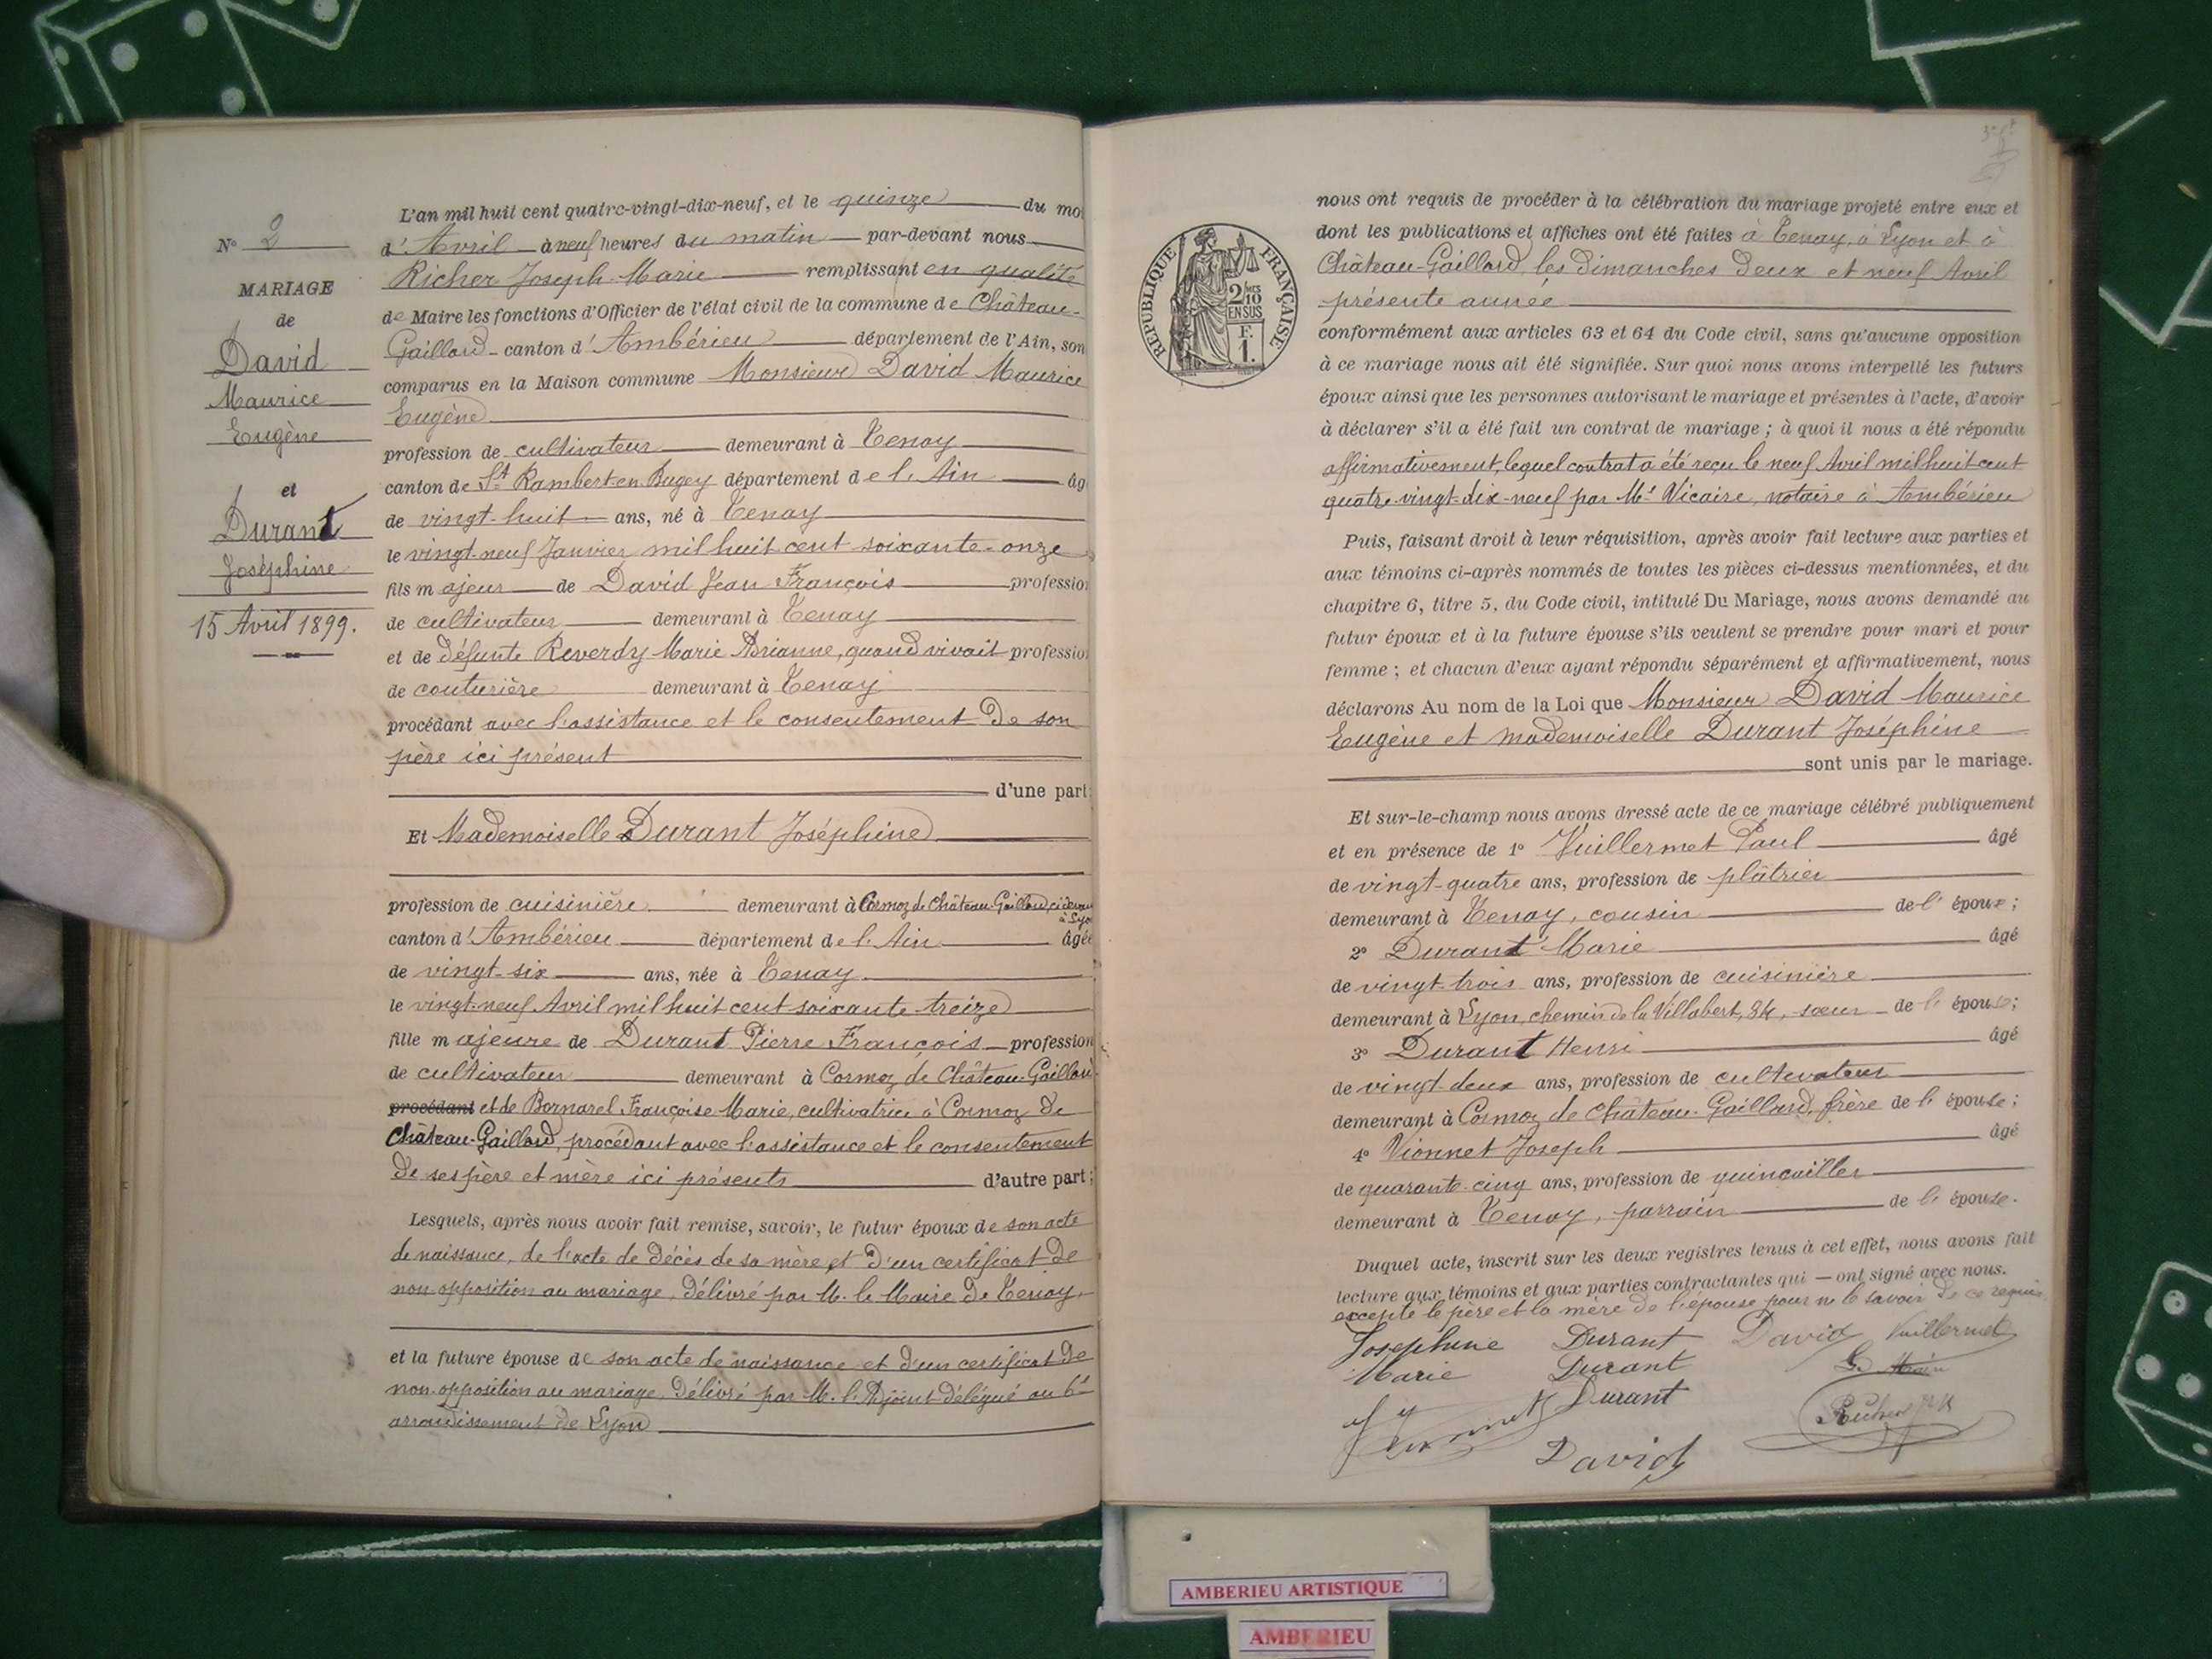 N° 2
MARIAGE
de
David
Maurice
Eugène
et
Durant
Joséphine
15 Avril 1899.
L'an mil huit cent quatre-vingt-dix-neuf, et le quinze du mo
d'Avril à neuf heures du matin par-devant nous
Richer Joseph Marie remplissant en qualité
de Maire les fonctions d'Officier de l'état civil de la commune de Château-
Gaillard canton d'Ambérieu département de l'Ain, son
comparus en la Maison commune Monsieur David Maurice
Eugène
profession de cultivateur demeurant à Tenay
canton de St Rambert en Bugey département de l'Ain âg
de vingt-huit ans, né à Tenay
le vingt-neuf Janvier mil huit cent soixante-onze
fils majeur de David Jean François profession
de cultivateur demeurant à Tenay
et de défunte Reverdy Marie Arianne, quand vivait profession
de couturière demeurant à Tenay
procédant avec l'assistance et le consentement de son
père ici présent
d'une part;
Et Mademoiselle Durant Joséphine
profession de cuisinière demeurant à Cormoz de Château-Gaillard, ci devant
à Lyon
canton d'Ambérieu département de l'Ain âgée
de vingt-six ans, née à Tenay
le vingt-neuf Avril mil huit cent soixante-treize
fille majeure de Durant Pierre François profession
de cultivateur demeurant à Cormoz de Château-Gaillard
procédant et de Bornarel Françoise Marie, cultivatrice à Cormoz de
Château-Gaillard, procédant avec l'assistance et le consentement
de ses père et mère ici présents d'autre part;
Lesquels, après nous avoir fait remise, savoir, le futur époux de son acte
de naissance, de l'acte de décès de sa mère et d'un certificat de
non opposition au mariage, délivré par M. le Maire de Tenay,
et la future épouse de son acte de naissance et d'un certificat de
non opposition au mariage, délivré par M. l'Adjoint délégué au 6e
arrondissement de Lyon
REPUBLIQUE FRANÇAISE
2/10
EN SUS
F.
1.
nous ont requis de procéder à la célébration du mariage projeté entre eux et
dont les publications et affiches ont été faites à Tenay, à Lyon et à
Château-Gaillard, les dimanches deux et neuf Avril
présente année
conformément aux articles 63 et 64 du Code civil, sans qu'aucune opposition
à ce mariage nous ait été signifiée. Sur quoi nous avons interpellé les futurs
époux ainsi que les personnes autorisant le mariage et présentes à l'acte, d'avoir
à déclarer s'il a été fait un contrat de mariage ; à quoi il nous a été répondu
affirmativement, lequel contrat a été reçu le neuf Avril mil huit cent
quatre-vingt-dix-neuf par Me Vicaire, notaire à Ambérieu
Puis, faisant droit à leur réquisition, après avoir fait lecture aux parties et
aux témoins ci-après nommés de toutes les pièces ci-dessus mentionnées, et du
chapitre 6, titre 5, du Code civil, intitulé Du Mariage, nous avons demandé au
futur époux et à la future épouse s'ils veulent se prendre pour mari et pour
femme ; et chacun d'eux ayant répondu séparément et affirmativement, nous
déclarons Au nom de la Loi que Monsieur David Maurice
Eugène et mademoiselle Durant Joséphine
sont unis par le mariage.
Et sur-le-champ nous avons dressé acte de ce mariage célébré publiquement
et en présence de 1° Vuillermet Paul âgé
de vingt-quatre ans, profession de plâtrier
demeurant à Tenay, cousin de l'époux ;
2° Durant Marie âgé
de vingt trois ans, profession de cuisinière
demeurant à Lyon, chemin de la Villabert, 34, sœur de l'épouse ;
3° Durant Henri âgé
de vingt-deux ans, profession de cultivateur
demeurant à Cormoz de Château-Gaillard, frère de l'épouse ;
4° Vionnet Joseph âgé
de quarante-cinq ans, profession de quincailler
demeurant à Tenay, parrain de l'épouse.
Duquel acte, inscrit sur les deux registres tenus à cet effet, nous avons fait
lecture aux témoins et aux parties contractantes qui — ont signé avec nous.
excepté le père et la mère de l'épouse pour ne le savoir de ce requis
Josephine Durant David Vuillermet
Marie Durant
Durant
Richer J M
David
AMBERIEU ARTISTIQUE
AMBERIEU